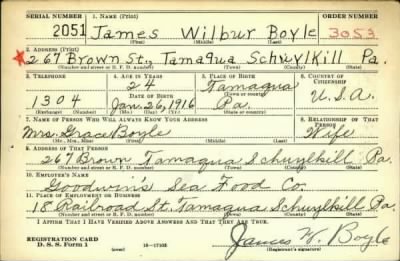 SERIAL NUMBER 1. NAME (Print) ORDER NUMBER
2051 James Wilbur Boyle 3053
(First) (Middle) (Last)
2. ADDRESS (Print)
267 Brown St., Tamaqua Schuylkill Pa.
(Number and street or R. F. D. number) (Town) (County) (State)
3. TELEPHONE 4. AGE IN YEARS 5. PLACE OF BIRTH 6. COUNTRY OF CITIZENSHIP
24 Tamaqua
DATE OF BIRTH (Town or county)
1304 Jan. 26, 1916 Pa. U.S.A.
(Exchange) (Number) (Mo.) (Day) (Yr.) (State or country)
7. NAME OF PERSON WHO WILL ALWAYS KNOW YOUR ADDRESS 8. RELATIONSHIP OF THAT PERSON
Mrs. Grace Boyle Wife
(Mr., Mrs., Miss) (First) (Middle) (Last)
9. ADDRESS OF THAT PERSON
267 Brown Tamaqua Schuylkill Pa.
(Number and street or R. F. D. number) (Town) (County) (State)
10. EMPLOYER'S NAME
Goodwins Sea Food Co.
11. PLACE OF EMPLOYMENT OR BUSINESS
18 Railroad St. Tamaqua Schuylkill Pa.
(Number and street or R. F. D. number) (Town) (County) (State)
I AFFIRM THAT I HAVE VERIFIED ABOVE ANSWERS AND THAT THEY ARE TRUE.
REGISTRATION CARD
D. S. S. Form 1 16—17105 James W. Boyle
(Registrant's signature)